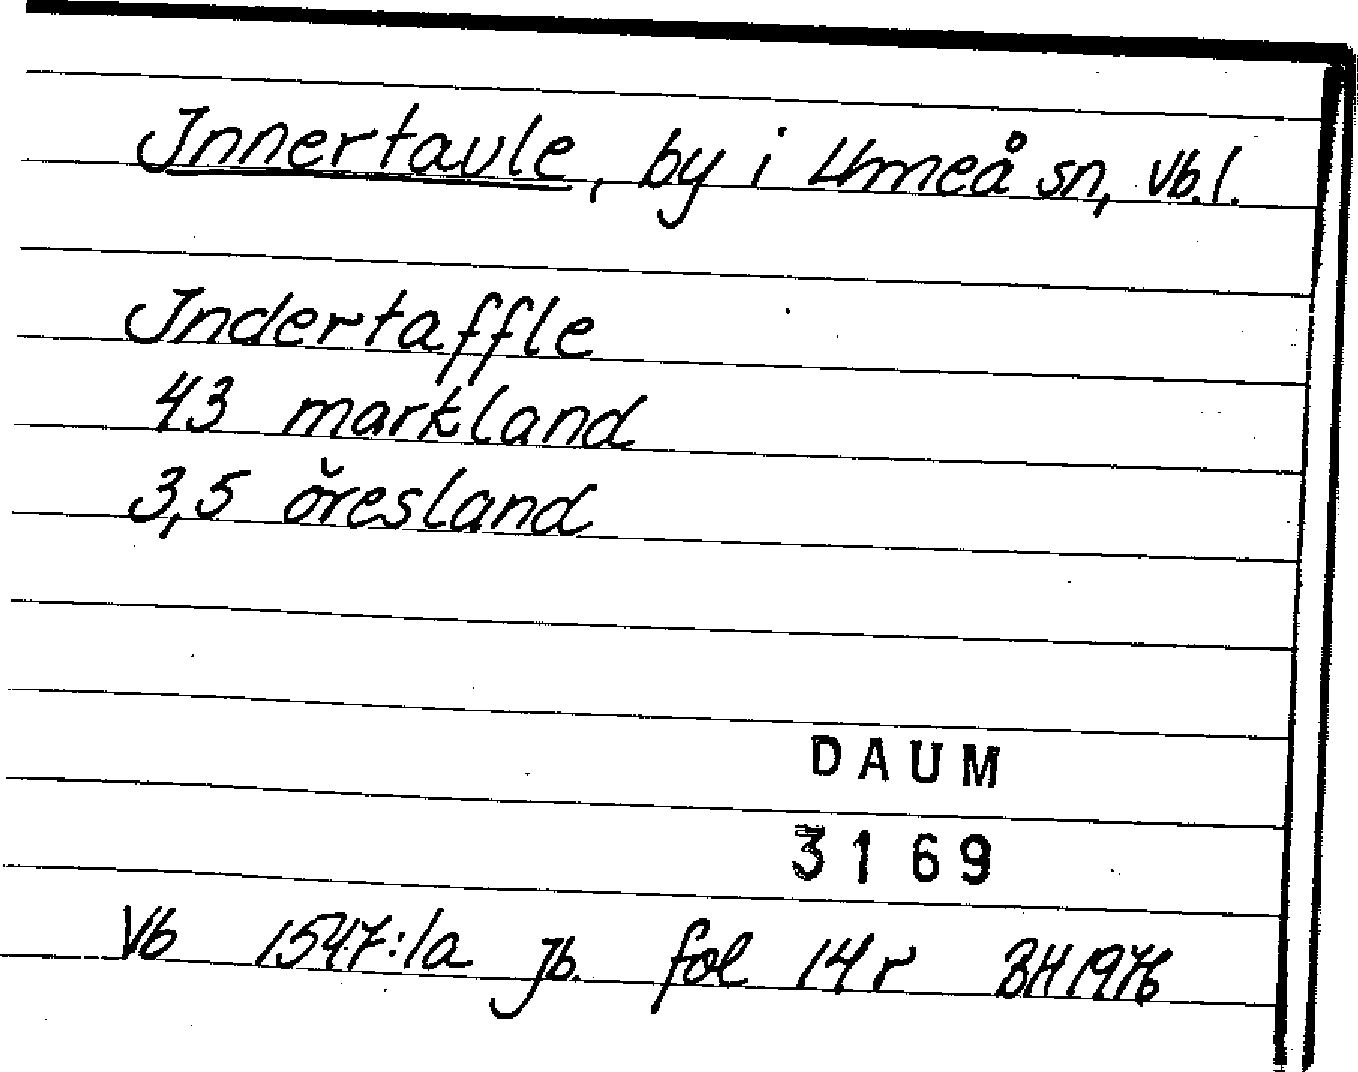 Innertavle, by i Umeå sn, Vb.l.
Indertaffle
43 markland
3,5 öresland
DAUM
3169
Vb 1547:1a Jb. fol 14 r BH 1976